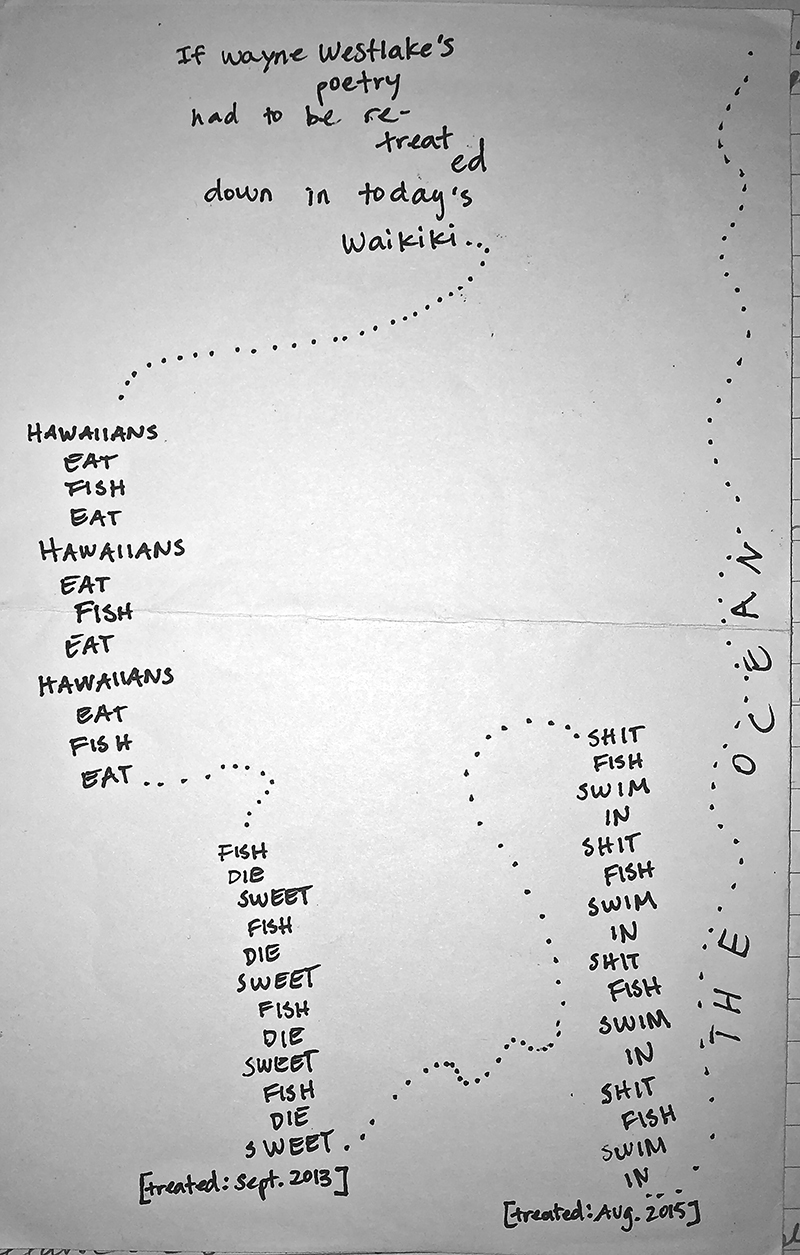 If wayne Westlake's
poetry
had to be re-
treat
ed
down in today's
Waikiki...
HAWAIIANS
EAT
FISH
EAT
HAWAIIANS
EAT
FISH
EAT
HAWAIIANS
EAT
FISH
EAT...
FISH
DIE
SWEET
FISH
DIE
SWEET
FISH
DIE
SWEET
FISH
DIE
SWEET...
[treated: Sept. 2013]
SHIT
FISH
SWIM
IN
SHIT
FISH
SWIM
IN
SHIT
FISH
SWIM
IN
SHIT
FISH
SWIM
IN...
[treated: Aug. 2015]
THE OCEAN